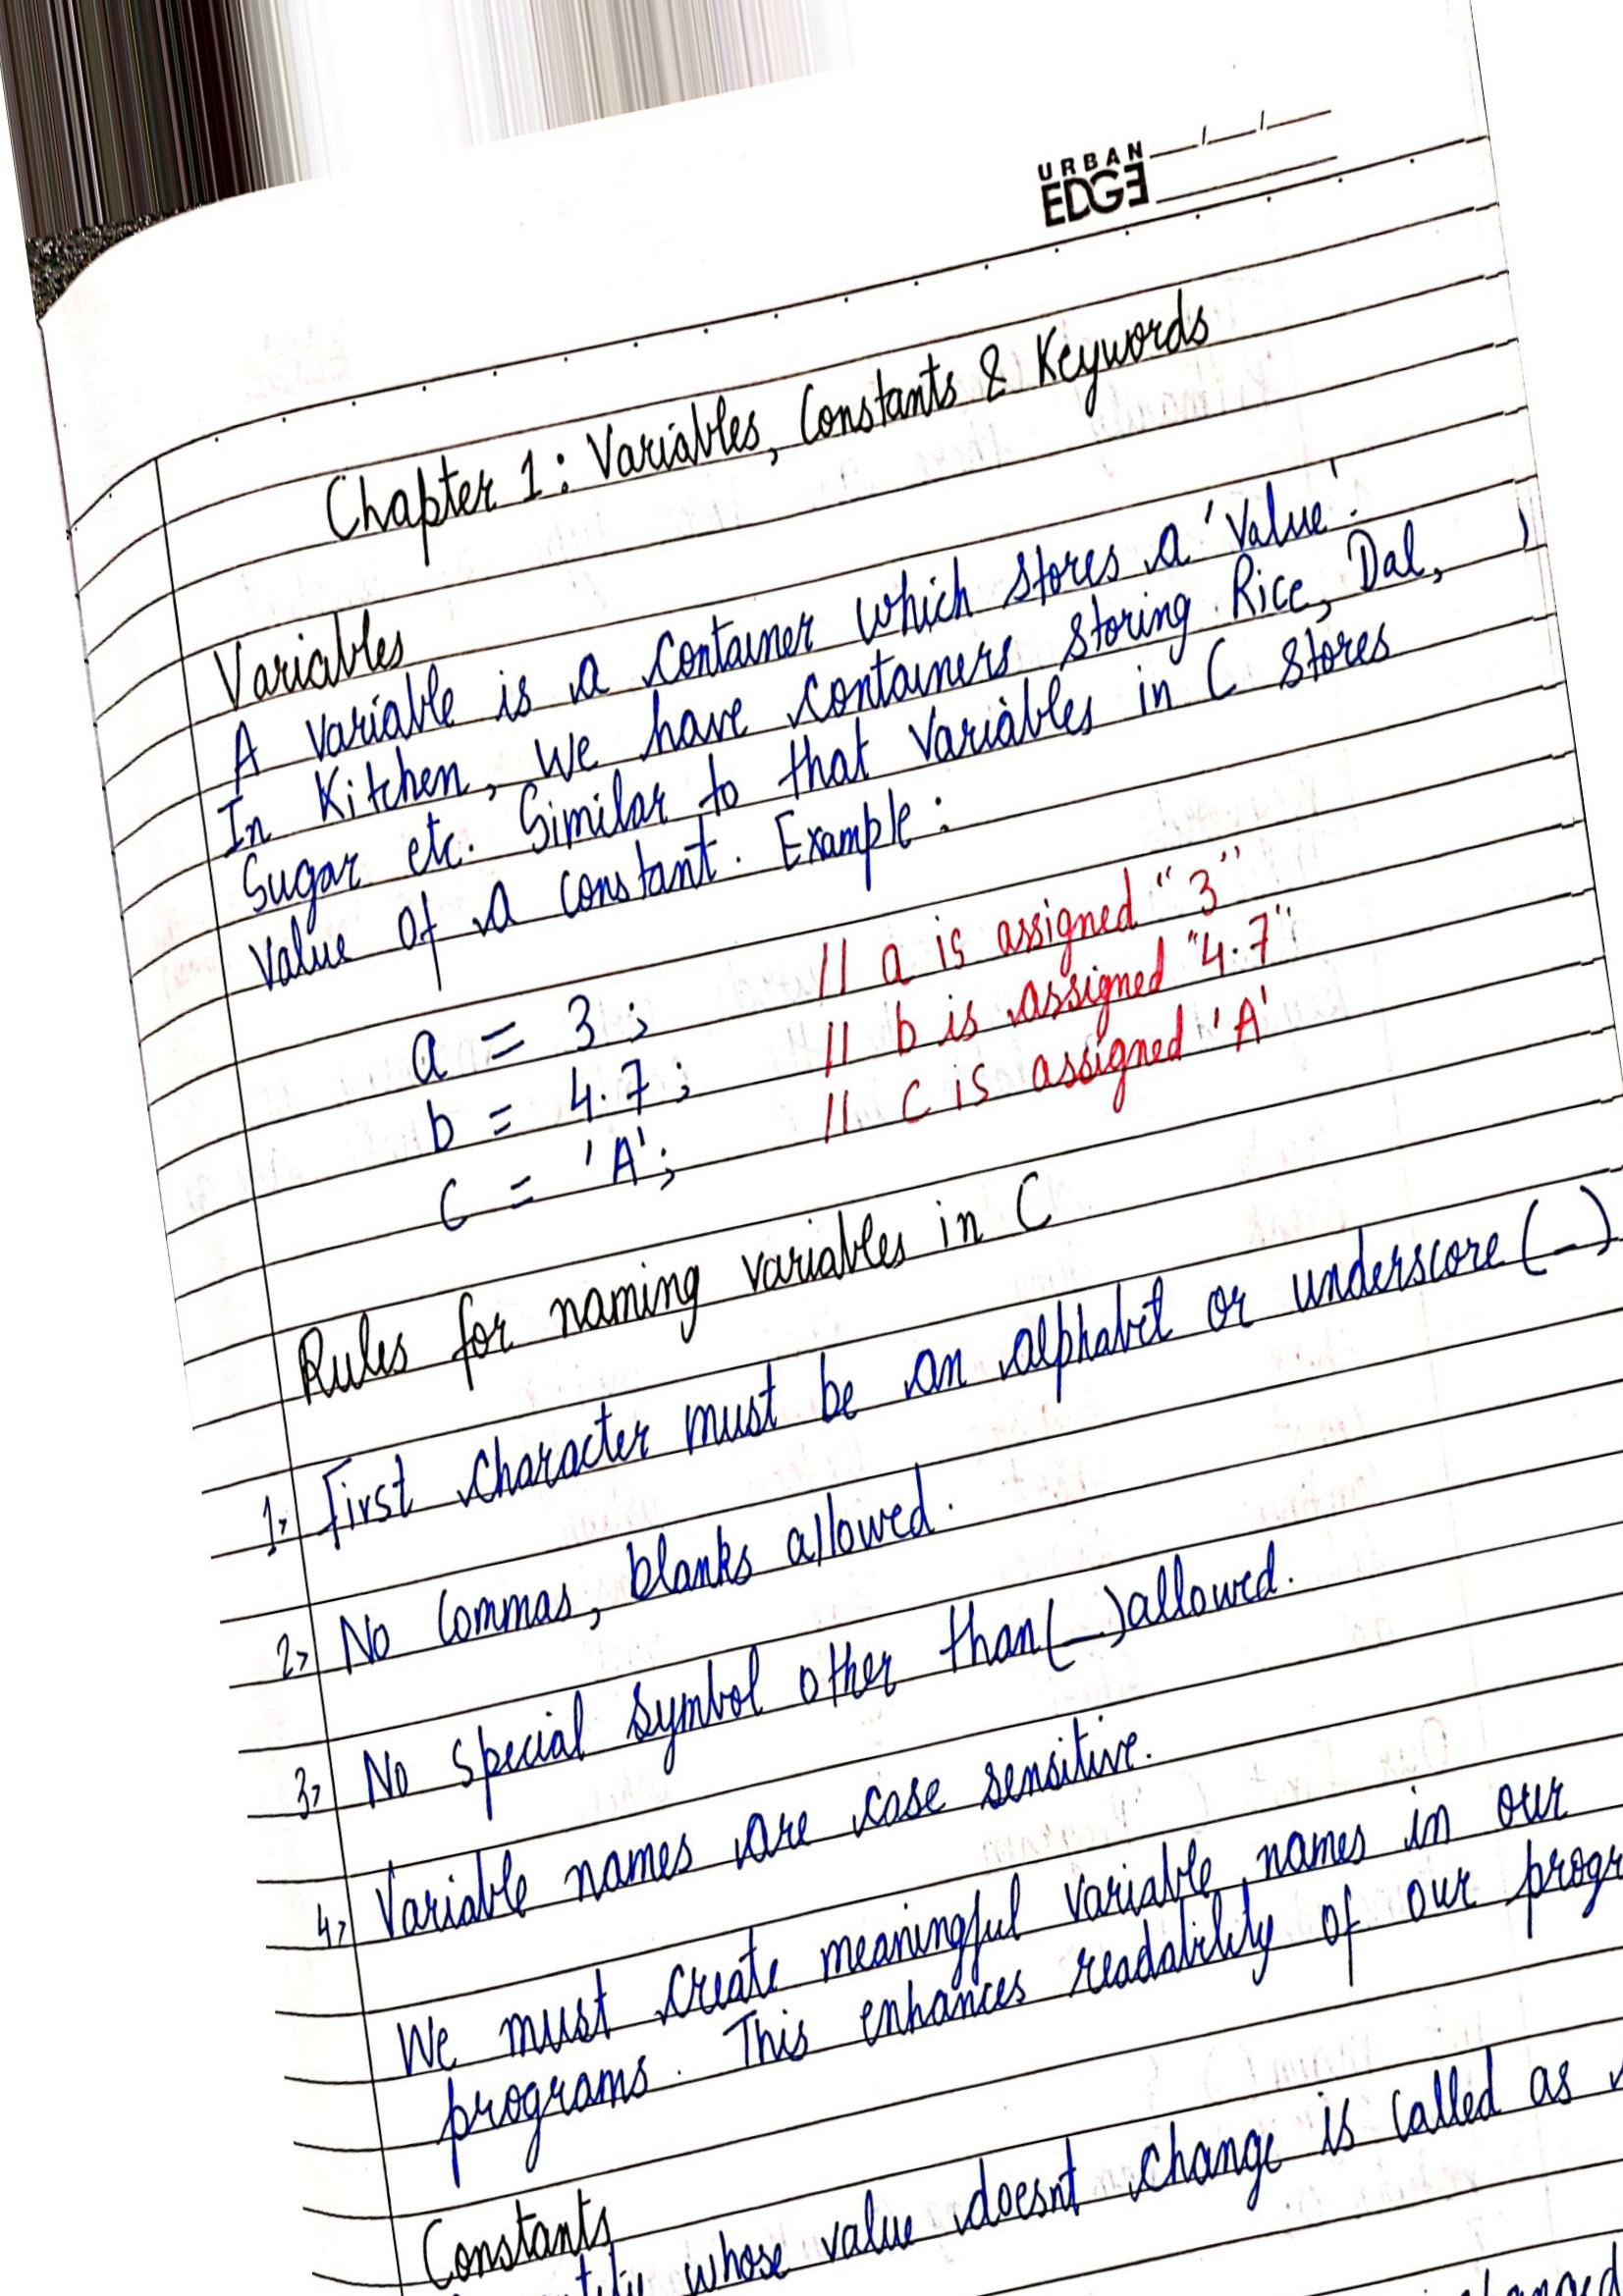 URBAN
EDGE
Chapter 1: Variables, Constants & Keywords
Variables
A variable is a container which stores a 'value'.
In Kitchen, We have containers storing Rice, Dal,
Sugar etc. Similar to that variables in C stores
value of a constant. Example:
a = 3; // a is assigned "3"
b = 4.7; // b is assigned "4.7"
c = 'A'; // c is assigned 'A'
Rules for naming variables in C
1> First character must be an alphabet or underscore (_)
2> No commas, blanks allowed.
3> No special symbol other than (_) allowed.
4> Variable names are case sensitive.
We must create meaningful variable names in our
programs. This enhances readability of our progr
Constants
whose value doesnt change is called as